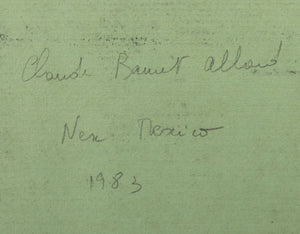 Claude Allard
New Mexico
1983